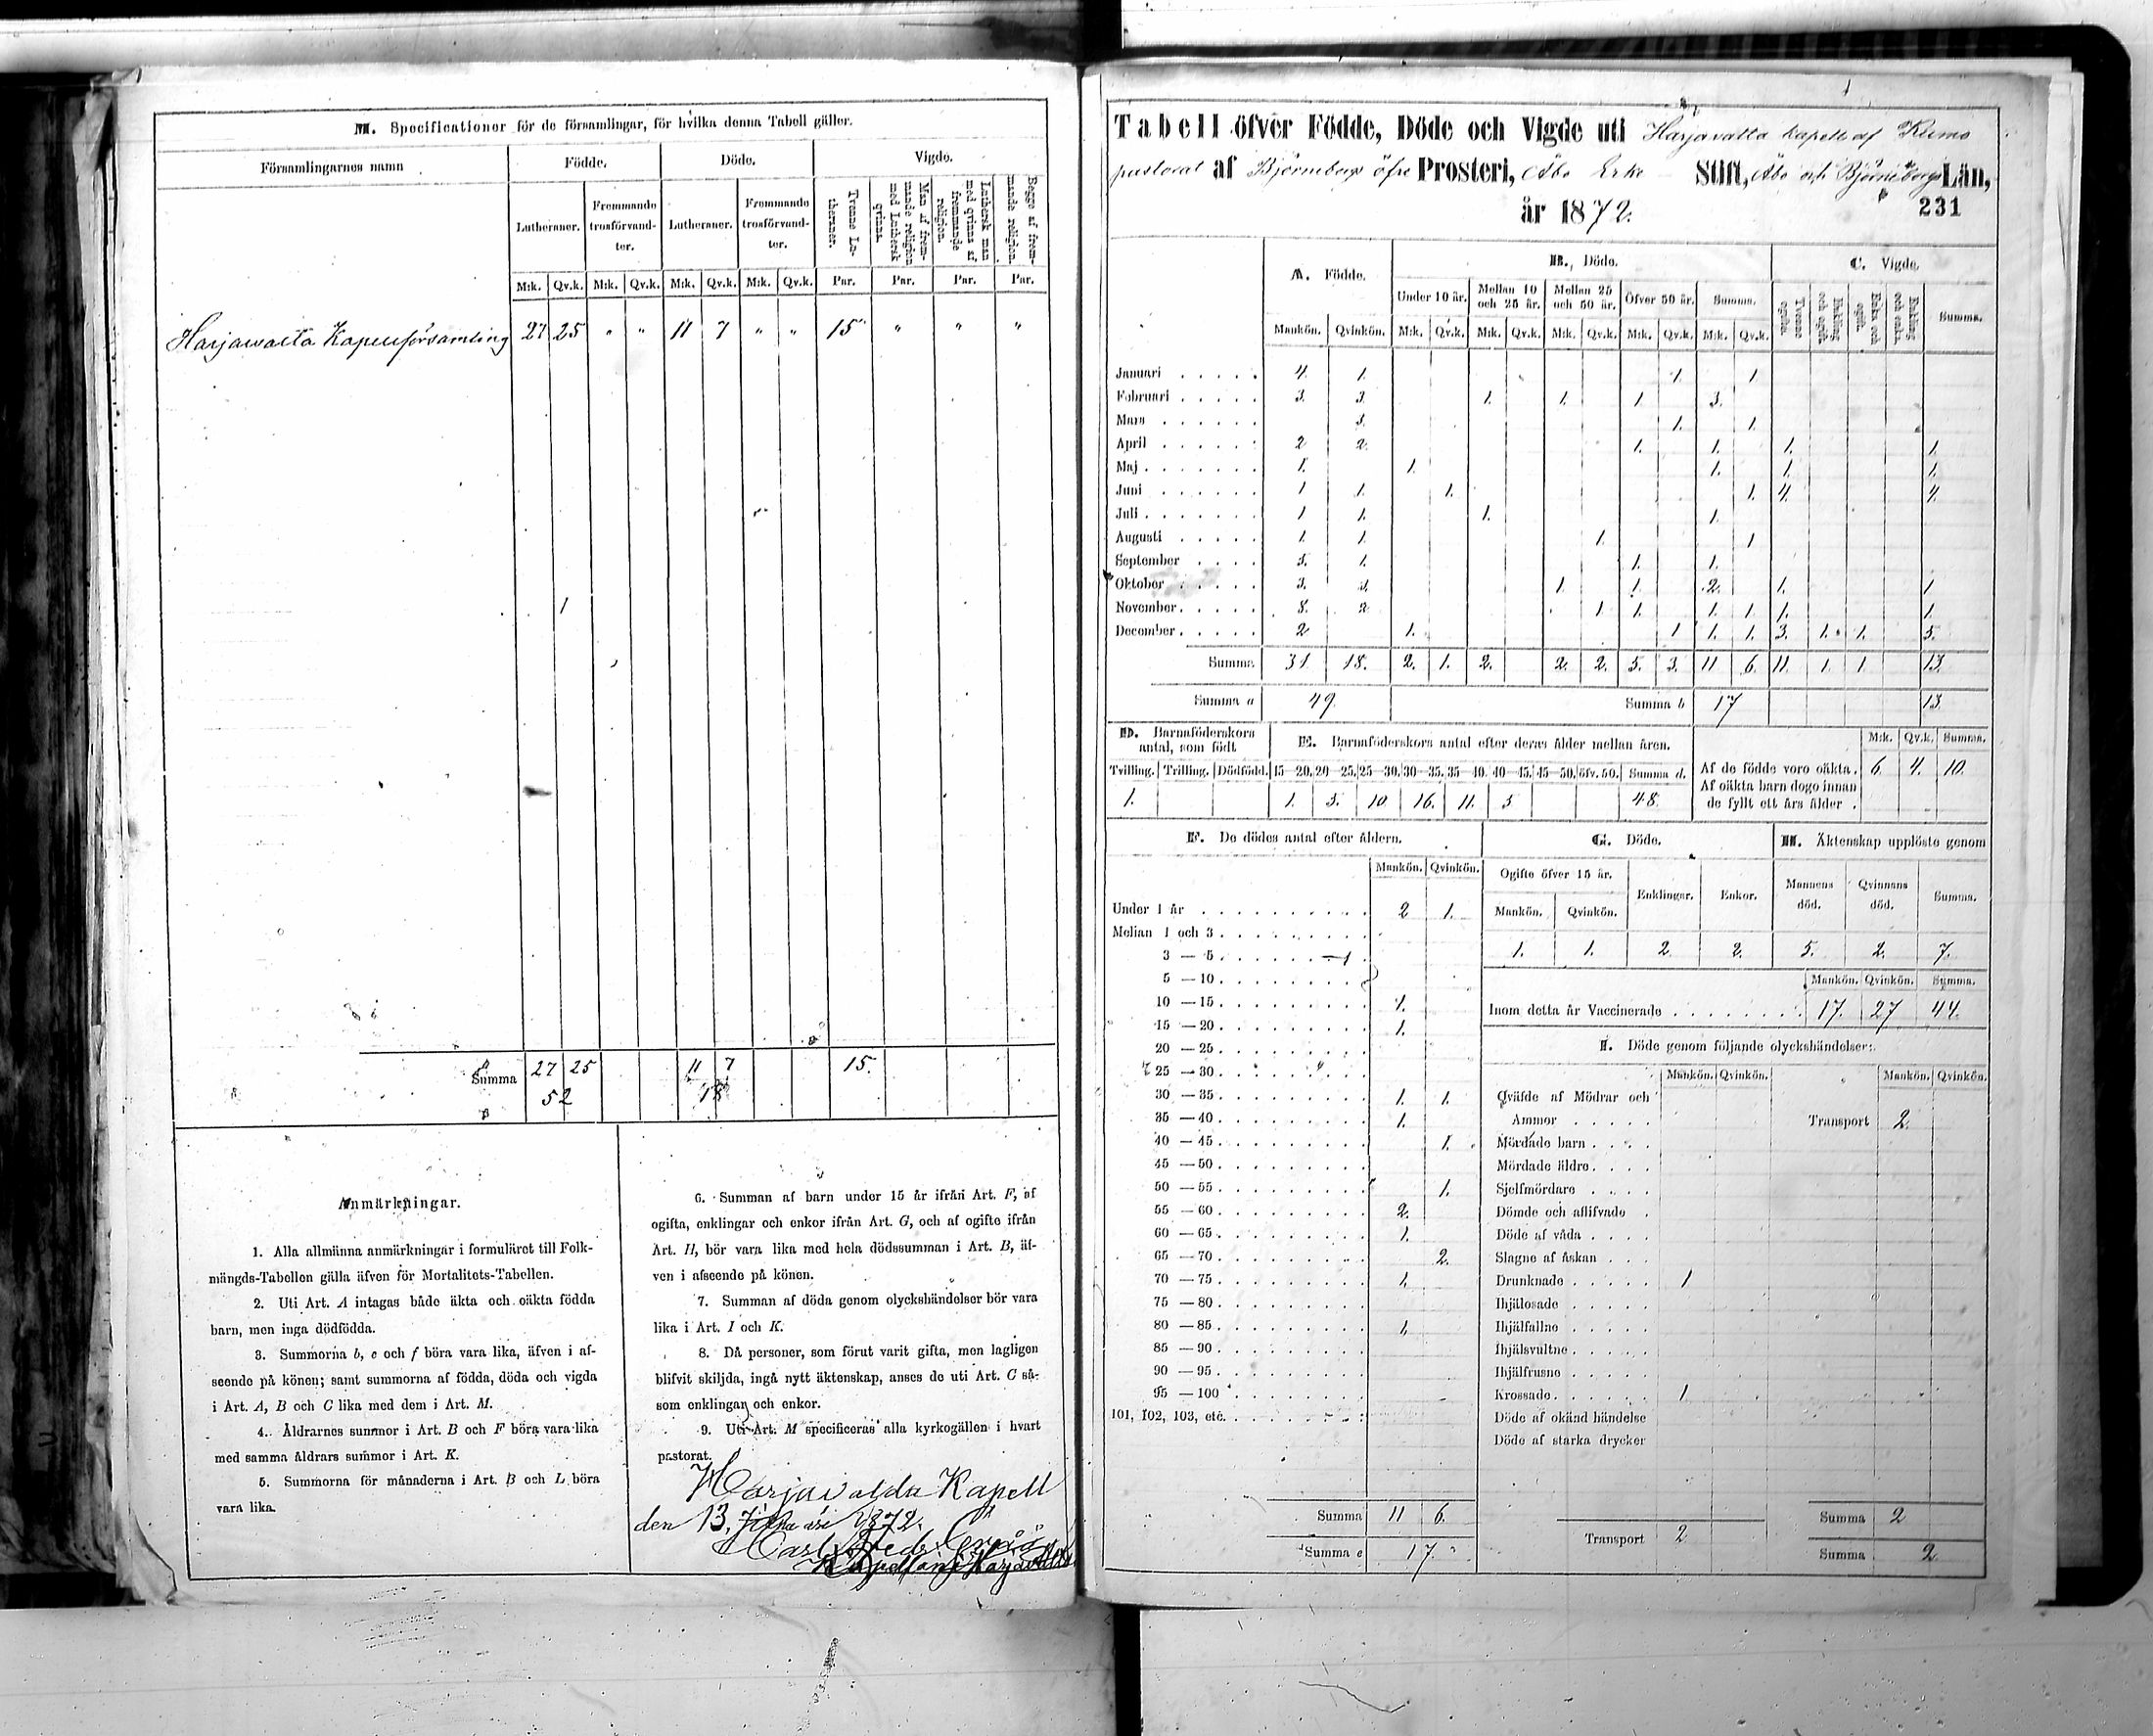 M. Specificationer för de församlingar, för hvilka denna Tabell gäller.
Församlingarnes namn Födde. Döde. Vigde.
Lutheraner. Fremmande trosförvandter. Lutheraner. Fremmande trosförvandter. Tvenne Lutheraner. Man af fremmande religion med Luthersk qvinna. Luthersk man med qvinna af fremmande religion. Begge af fremmande religion.
M:k. Qv.k. M:k. Qv.k. M:k. Qv.k. M:k. Qv.k. Par. Par. Par. Par.
Harjawalta Kapellförsamling 27 25 " " 11 7 " " 15 " " "
Summa 27 25 11 7 15.
52 18
Anmärkningar.
1. Alla allmänna anmärkningar i formuläret till Folk-
mängds-Tabellen gälla äfven för Mortalitets-Tabellen.
2. Uti Art. A intagas både äkta och oäkta födda
barn, men inga dödfödda.
3. Summorna b, e och f böra vara lika, äfven i af-
seende på könen; samt summorna af födda, döda och vigda
i Art. A, B och C lika med dem i Art. M.
4. Åldrarnes summor i Art. B och F böra vara lika
med samma åldrars summor i Art. K.
5. Summorna för månaderna i Art. B och L böra
vara lika.
6. Summan af barn under 15 år ifrån Art. F, af
ogifta, enklingar och enkor ifrån Art. G, och af ogifte ifrån
Art. H, bör vara lika med hela dödssumman i Art. B, äf-
ven i afseende på könen.
7. Summan af döda genom olyckshändelser bör vara
lika i Art. I och K.
8. Då personer, som förut varit gifta, men lagligen
blifvit skiljda, ingå nytt äktenskap, anses de uti Art. C så-
som enklingar och enkor.
9. Uti Art. M specificeras alla kyrkogällen i hvart
pastorat.
Harjavalda Kapell
den 13 1872.
Carl Fredr.
Kapellan i Harjavalta
Tabell öfver Födde, Döde och Vigde uti Harjavalta kapell af Kumo
pastorat af Björneborgs öfre Prosteri, Åbo Erke Stift, Åbo och Björneborgs Län,
år 1872.
231
A. Födde. B. Döde. C. Vigde.
Under 10 år. Mellan 10 och 25 år. Mellan 25 och 50 år. Öfver 50 år. Summa. Tvenne ogifte. Enkling och ogift. Enka och ogift. Enkling och enka. Summa.
Mankön. Qvinkön. M:k. Qv.k. M:k. Qv.k. M:k. Qv.k. M:k. Qv.k. M:k. Qv.k.
Januari 4. 1. 1. 1.
Februari 3. 3. 1. 1. 1. 3.
Mars 3. 1. 1.
April 2 2. 1. 1. 1. 1.
Maj 1. 1. 1. 1. 1.
Juni 1 1. 1. 1. 4. 4.
Juli 1 1. 1. 1.
Augusti 1 1. 1. 1
September 5. 1. 1. 1.
Oktober 3. 3. 1 1. 2. 1. 1
November 8. 2 1 1. 1. 1. 1. 1.
December 2 1. 1 1. 1. 3. 1. 1. 5.
Summa 31 18. 2. 1. 2. 2. 2. 5. 3. 11 6. 11. 1. 1 13.
Summa a 49. Summa b 17 13.
D. Barnaföderskors antal, som födt E. Barnaföderskors antal efter deras ålder mellan åren. M:k. Qv.k. Summa.
Tvilling. Trilling. Dödfödd. 15—20. 20—25. 25—30. 30—35. 35—40. 40—45. 45—50. öfv. 50. Summa d. Af de födde voro oäkta. 6. 4. 10.
1. 1. 5. 10 16. 11. 5 48. Af oäkta barn dogo innan
de fyllt ett års ålder .
F. De dödes antal efter åldern. G. Döde. H. Äktenskap upplöste genom
Mankön. Qvinkön. Ogifte öfver 15 år. Enklingar. Enkor. Mannens död. Qvinnans död. Summa.
Mankön. Qvinkön.
1. 1. 2. 2. 5. 2. 7.
Under 1 år 2 1.
Mellan 1 och 3
3 — 5
5 — 10
10 — 15 1.
15 — 20 1.
20 — 25
25 — 30
30 — 35 1. 1.
35 — 40 1.
40 — 45 1.
45 — 50
50 — 55 1.
55 — 60 2.
60 — 65 1.
65 — 70 2.
70 — 75 1.
75 — 80
80 — 85 1.
85 — 90
90 — 95
95 — 100
101, 102, 103, etc.
Summa 11 6.
Summa e 17.
Mankön. Qvinkön. Summa.
Inom detta år Vaccinerade 17. 27 44.
I. Döde genom följande olyckshändelser:
Mankön. Qvinkön. Mankön. Qvinkön.
Qväfde af Mödrar och
Ammor Transport 2.
Mördade barn
Mördade äldre
Sjelfmördare
Dömde och aflifvade
Döde af våda
Slagne af åskan
Drunknade 1
Ihjälosade
Ihjälfallne
Ihjälsvultne
Ihjälfrusne
Krossade 1
Döde af okänd händelse
Döde af starka drycker
Transport 2
Summa 2
Summa 2